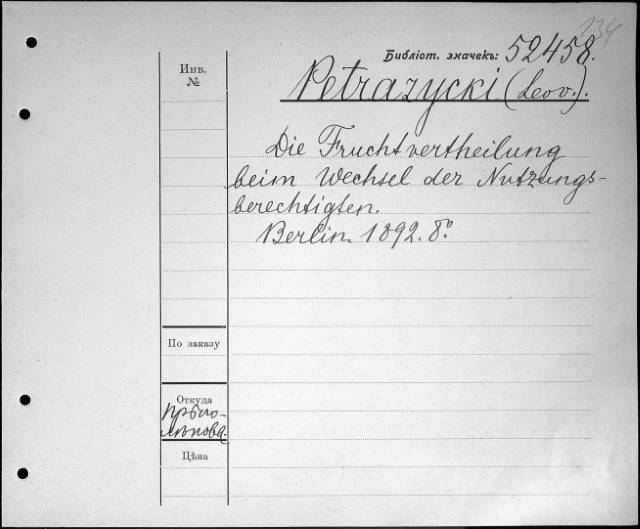 134
Библіот. значекъ: 52458.
Инв.
№
Petrazycki (Leov.).
Die Fruchtvertheilung
beim Wechsel der Nutzungs-
berechtigten.
Berlin. 1892. 8º.
По заказу
Откуда
Цѣна